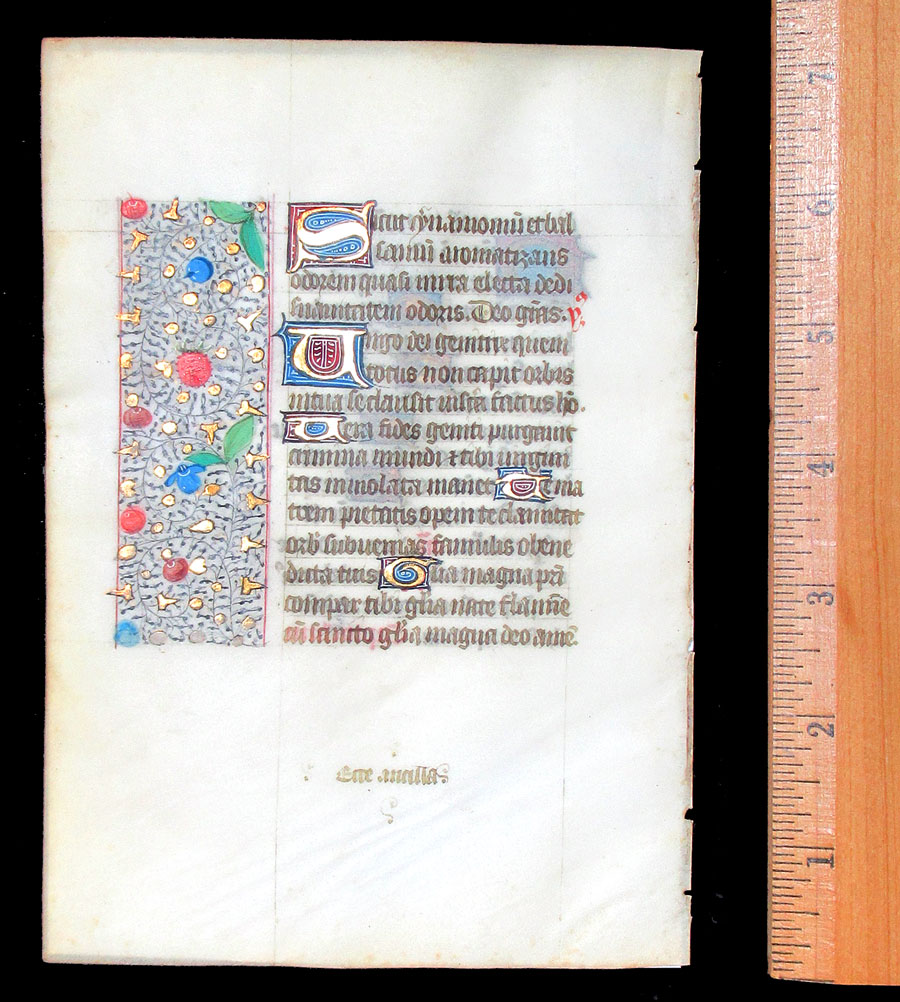 Sicut cynamomū et bal
samū aromatizans
odorem quasi mirra electa dedi
suauitatem odoris. Deo grās. V̷.
Uirgo dei genitrix quem
totus non capit orbis
in tua se clausit uiscera factus ho.
Uera fides geniti purgauit
crimina mundi et tibi uirgini
tas inuiolata manet Te ma
trem pietatis opem te clamitat
orb subuenias famulis o bene
dicta tuis Glīa magna prī
compar tibi glīa nate flamīe
cū sancto glīa magna deo amē
Ecce ancilla
7
6
5
4
3
2
1